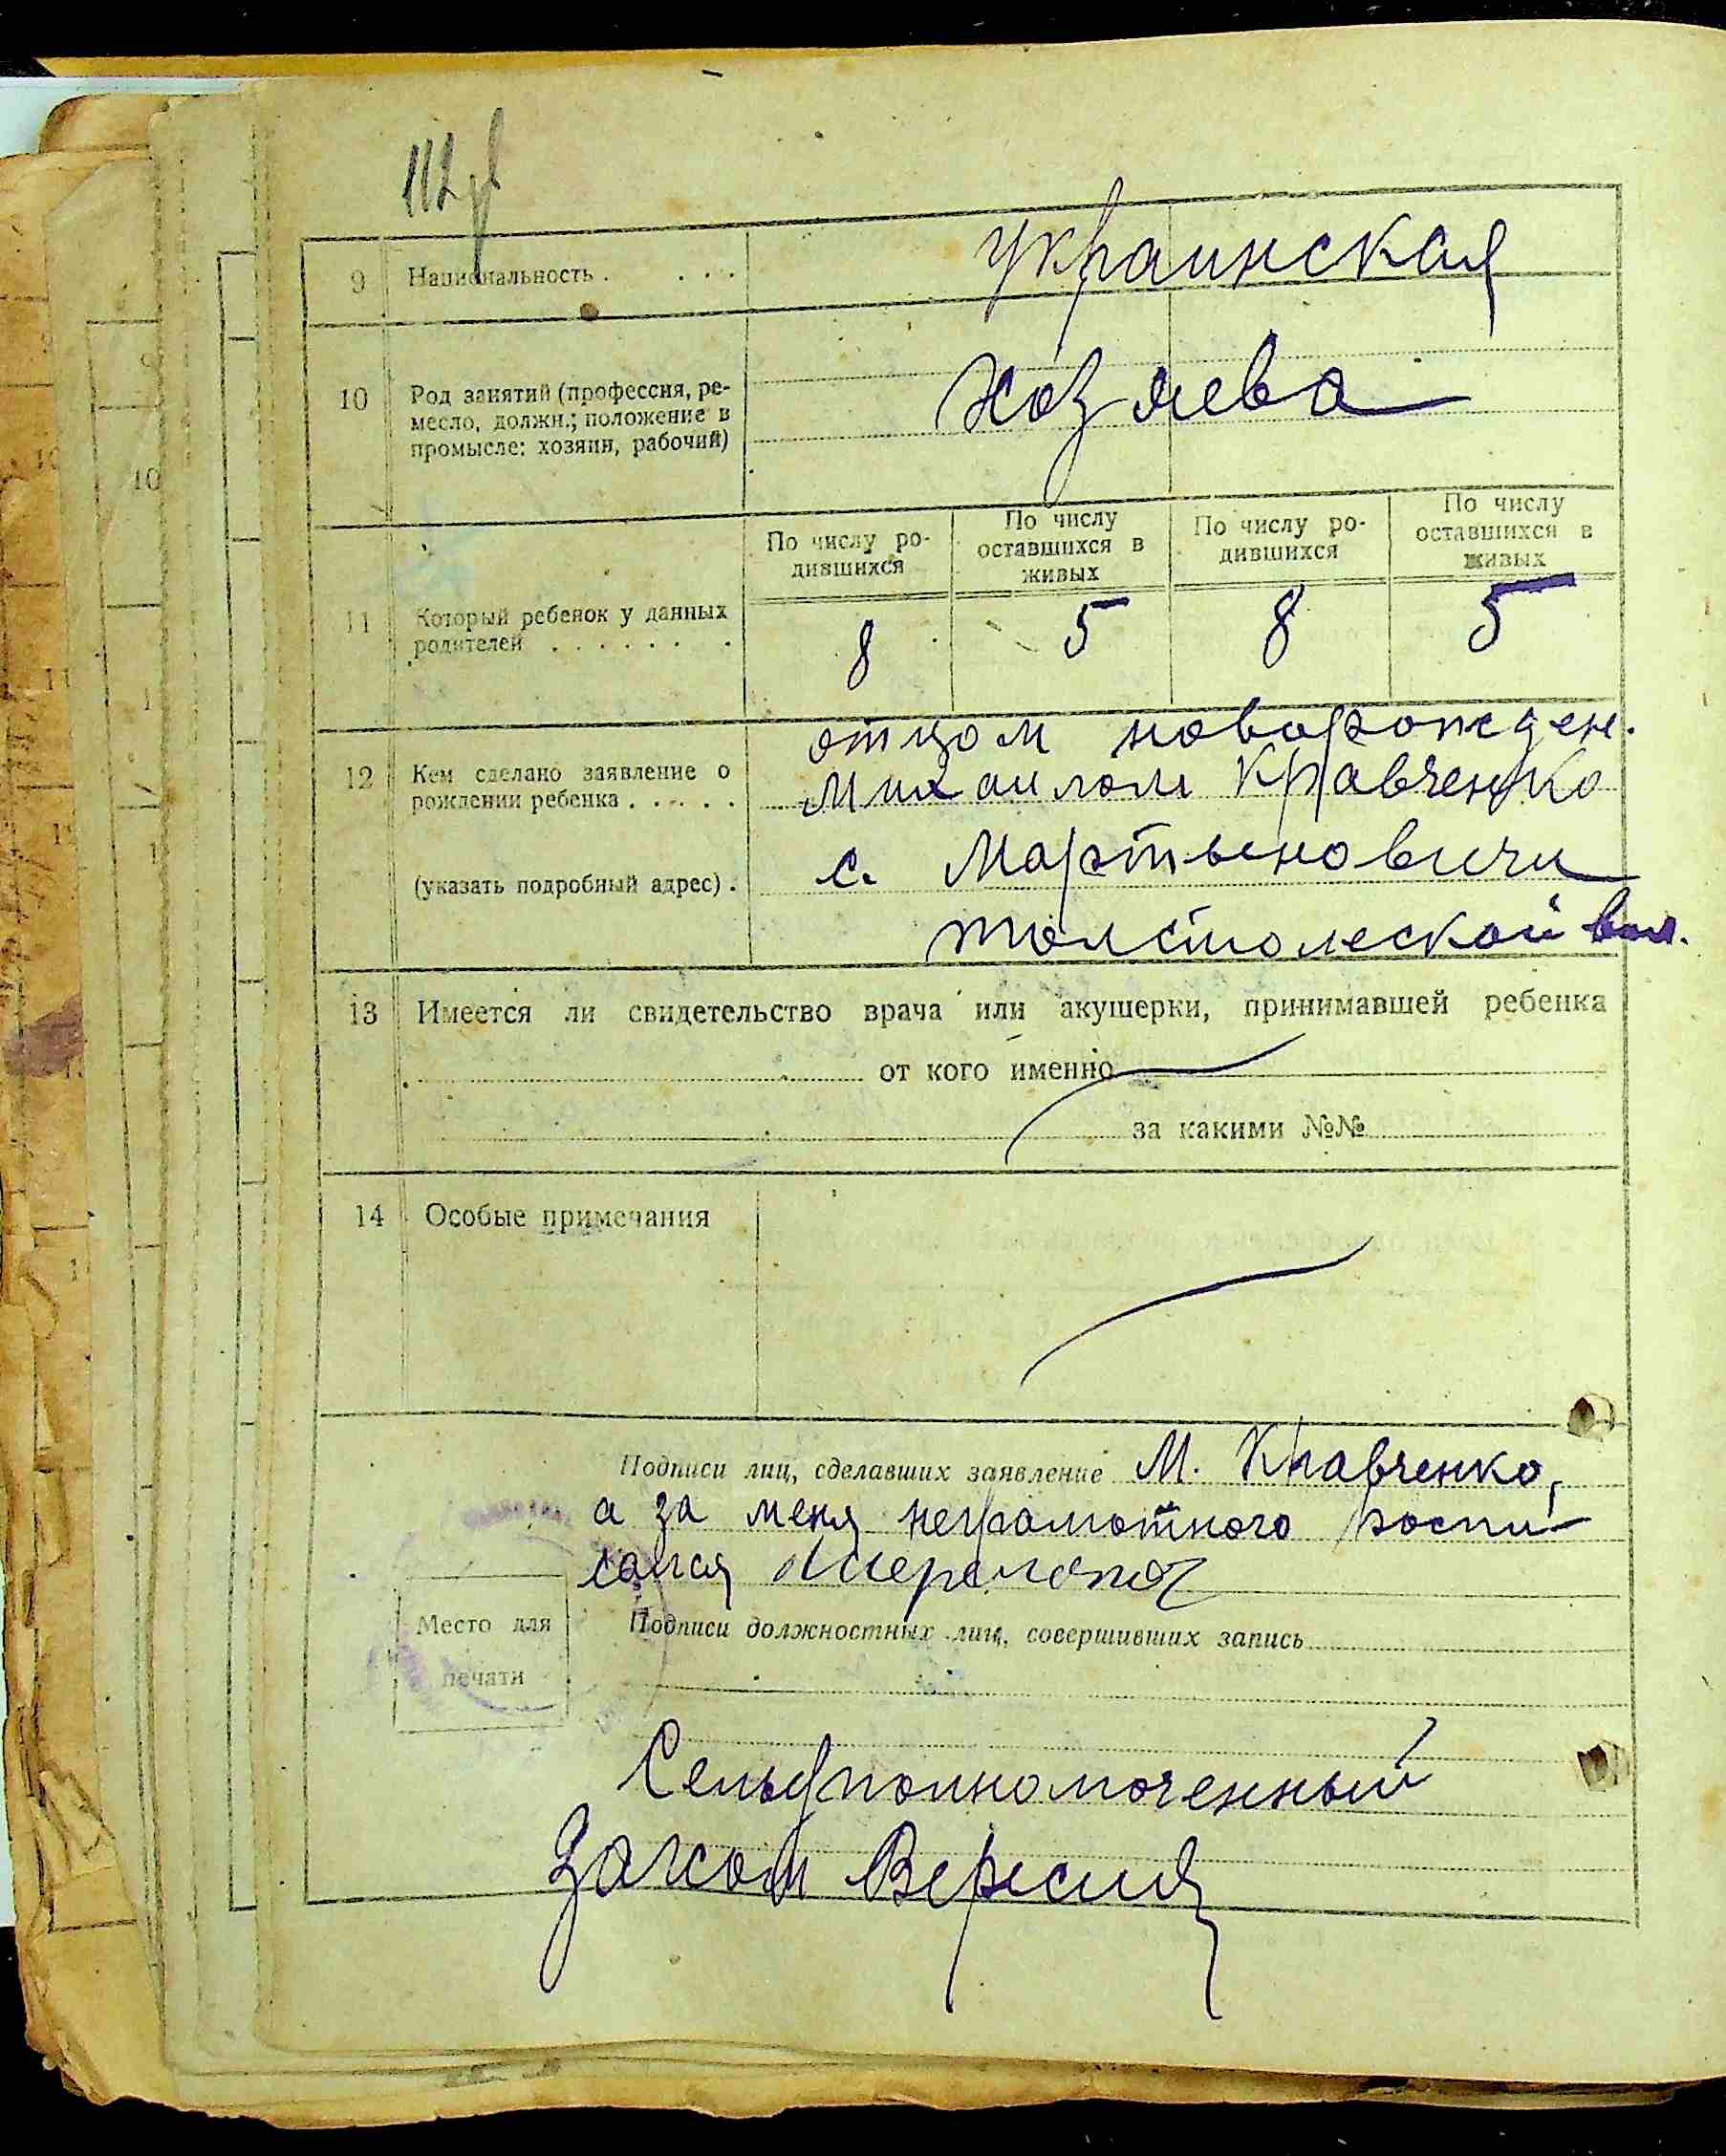 112
9 Национальность . . . . украинская
10 Род занятий (профессия, ре-
месло, должн.; положение в
промысле: хозяин, рабочий)
хозяева
11 Который ребенок у данных
родителей . . . . . . .
По числу ро-
дившихся
По числу
оставшихся в
живых
По числу ро-
дившихся
По числу
оставшихся в
живых
8 5 8 5
12 Кем сделано заявление о
рождении ребенка . . . . .
(указать подробный адрес) .
отцом новорожден.
Михаилом Кравченко
с. Мартыновичи
толстолеской вол.
13 Имеется ли свидетельство врача или акушерки, принимавшей ребенка
от кого именно
за какими №№
14 Особые примечания
Подписи лиц, сделавших заявление М. Кравченко,
а за меня неграмотного роспи-
сался
Место для
печати
Подписи должностных лиц, совершивших запись
Сельуполномоченный
10